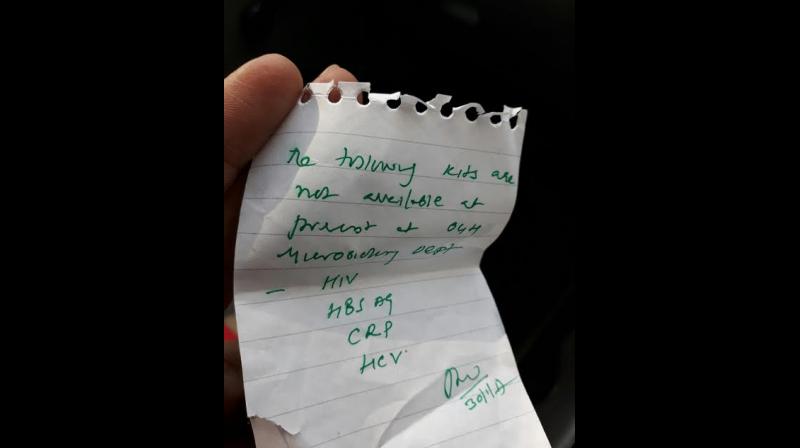 The following kits are
not available at
present at OGH
Microbiology Dept
- HIV
HBS Ag
CRP
HCV